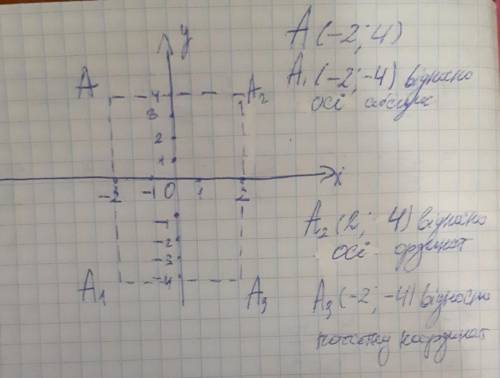 y
A 4 A₂
3
2
1
-2 -1 0 1 2 x
-1
-2
-3
A₁ -4 A₃
A (-2; 4)
A₁ (-2; -4) відносно
осі абсцис
A₂ (2; 4) відносно
осі ординат
A₃ (-2; -4) відносно
початку координат